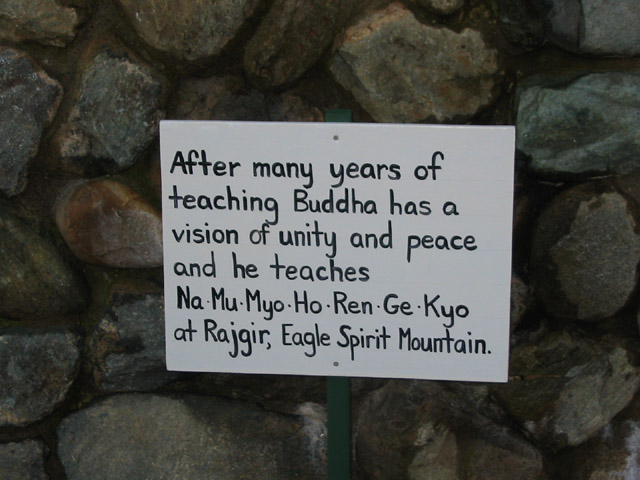 After many years of
teaching Buddha has a
vision of unity and peace
and he teaches
Na·Mu·Myo·Ho·Ren·Ge·Kyo
at Rajgir, Eagle Spirit Mountain.